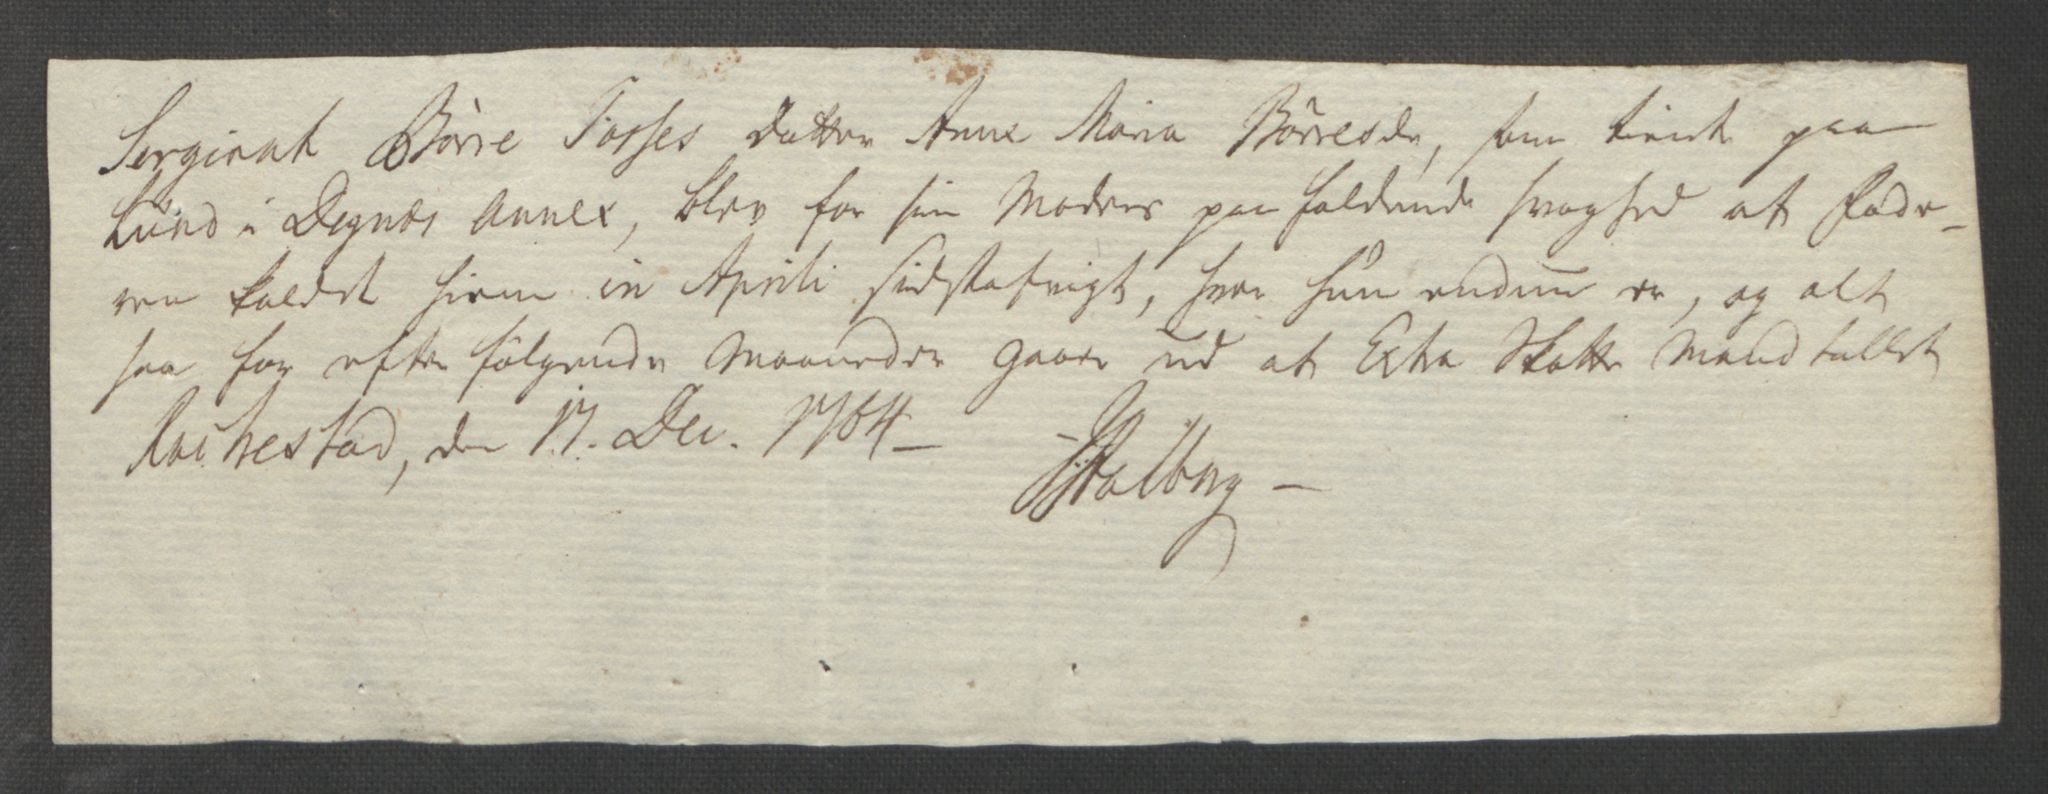 Sergient Börre Fosses datter Anne Maria Börresdr, som tient paa
Lund i Degnæs Annex, blev for sin Moders paafaldende svaghed af Fade-
ren kaldet hiem in Aprili sidstafvigt, hvor hun endnu er, og alt
saa for efterfølgende Maaneder gaaer ud af Extra Skatte Mandtallet
Rachestad, den 17. Dec. 1764 –
Stalberg –